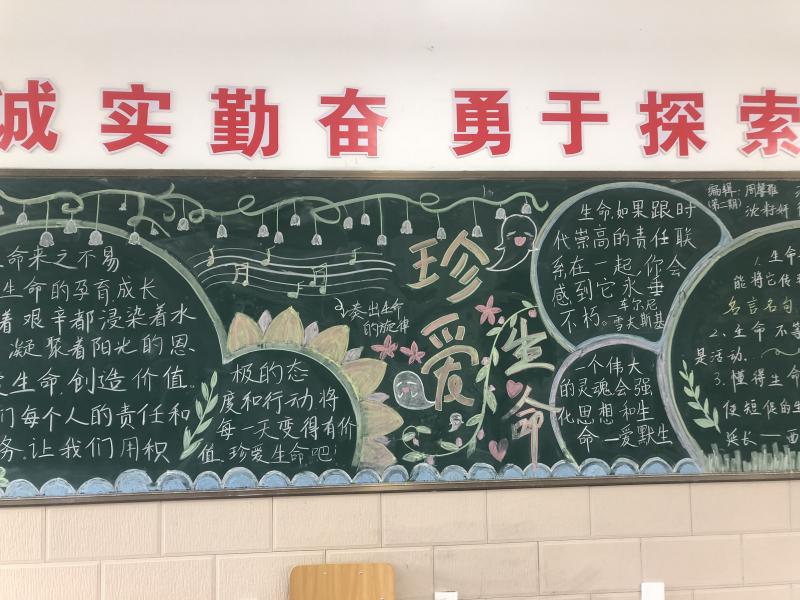 诚实勤奋 勇于探索
生命来之不易
生命的孕育成长
着艰辛都浸染着水
凝聚着阳光的恩
爱生命,创造价值。
们每个人的责任和
务,让我们用积
极的态
度和行动将
每一天变得有价
值.珍爱生命吧!
奏出生命
的旋律
珍爱生命
生命,如果跟时
代崇高的责任联
系在一起,你会
感到它永垂
不朽。
车尔尼
雪夫斯基
一个伟大
的灵魂会强
化思想和生
命—爱默生
编辑:周馨雅
(第二期)
沈籽妍
1.生命
能将它传
名言名句
2.生命不等
是活动.
3.懂得生命
使短促的生
延长——西